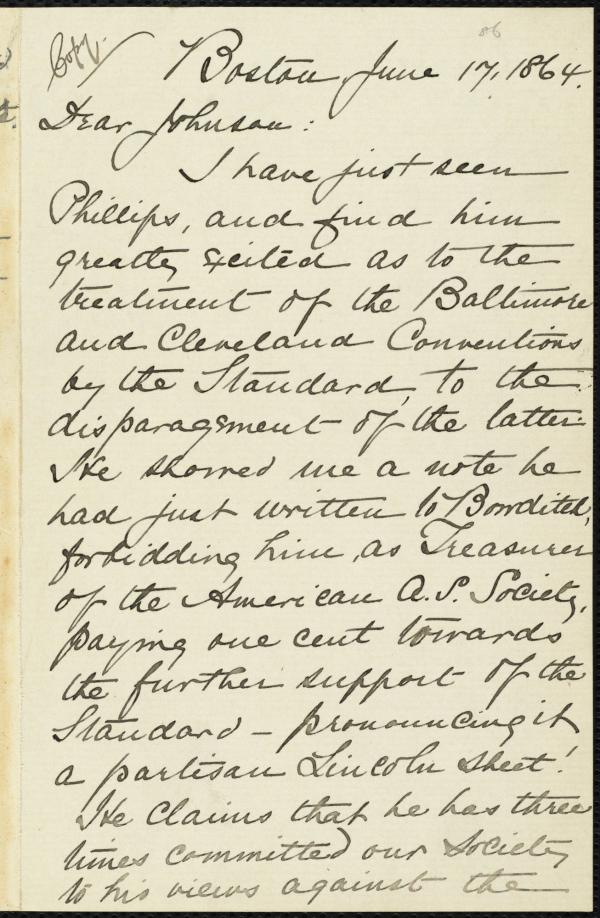 86
Copy.
Boston, June 17, 1864.
Dear Johnson:
I have just seen
Phillips, and find him
greatly excited as to the
treatment of the Baltimore
and Cleveland Conventions
by the Standard, to the
disparagement of the latter.
He showed me a note he
had just written to Bowditch,
forbidding him, as Treasurer
of the American A.S. Society,
paying one cent towards
the further support of the
Standard – pronouncing it
a partisan Lincoln sheet!
He claims that he has three
times committed our Society
to his views against the